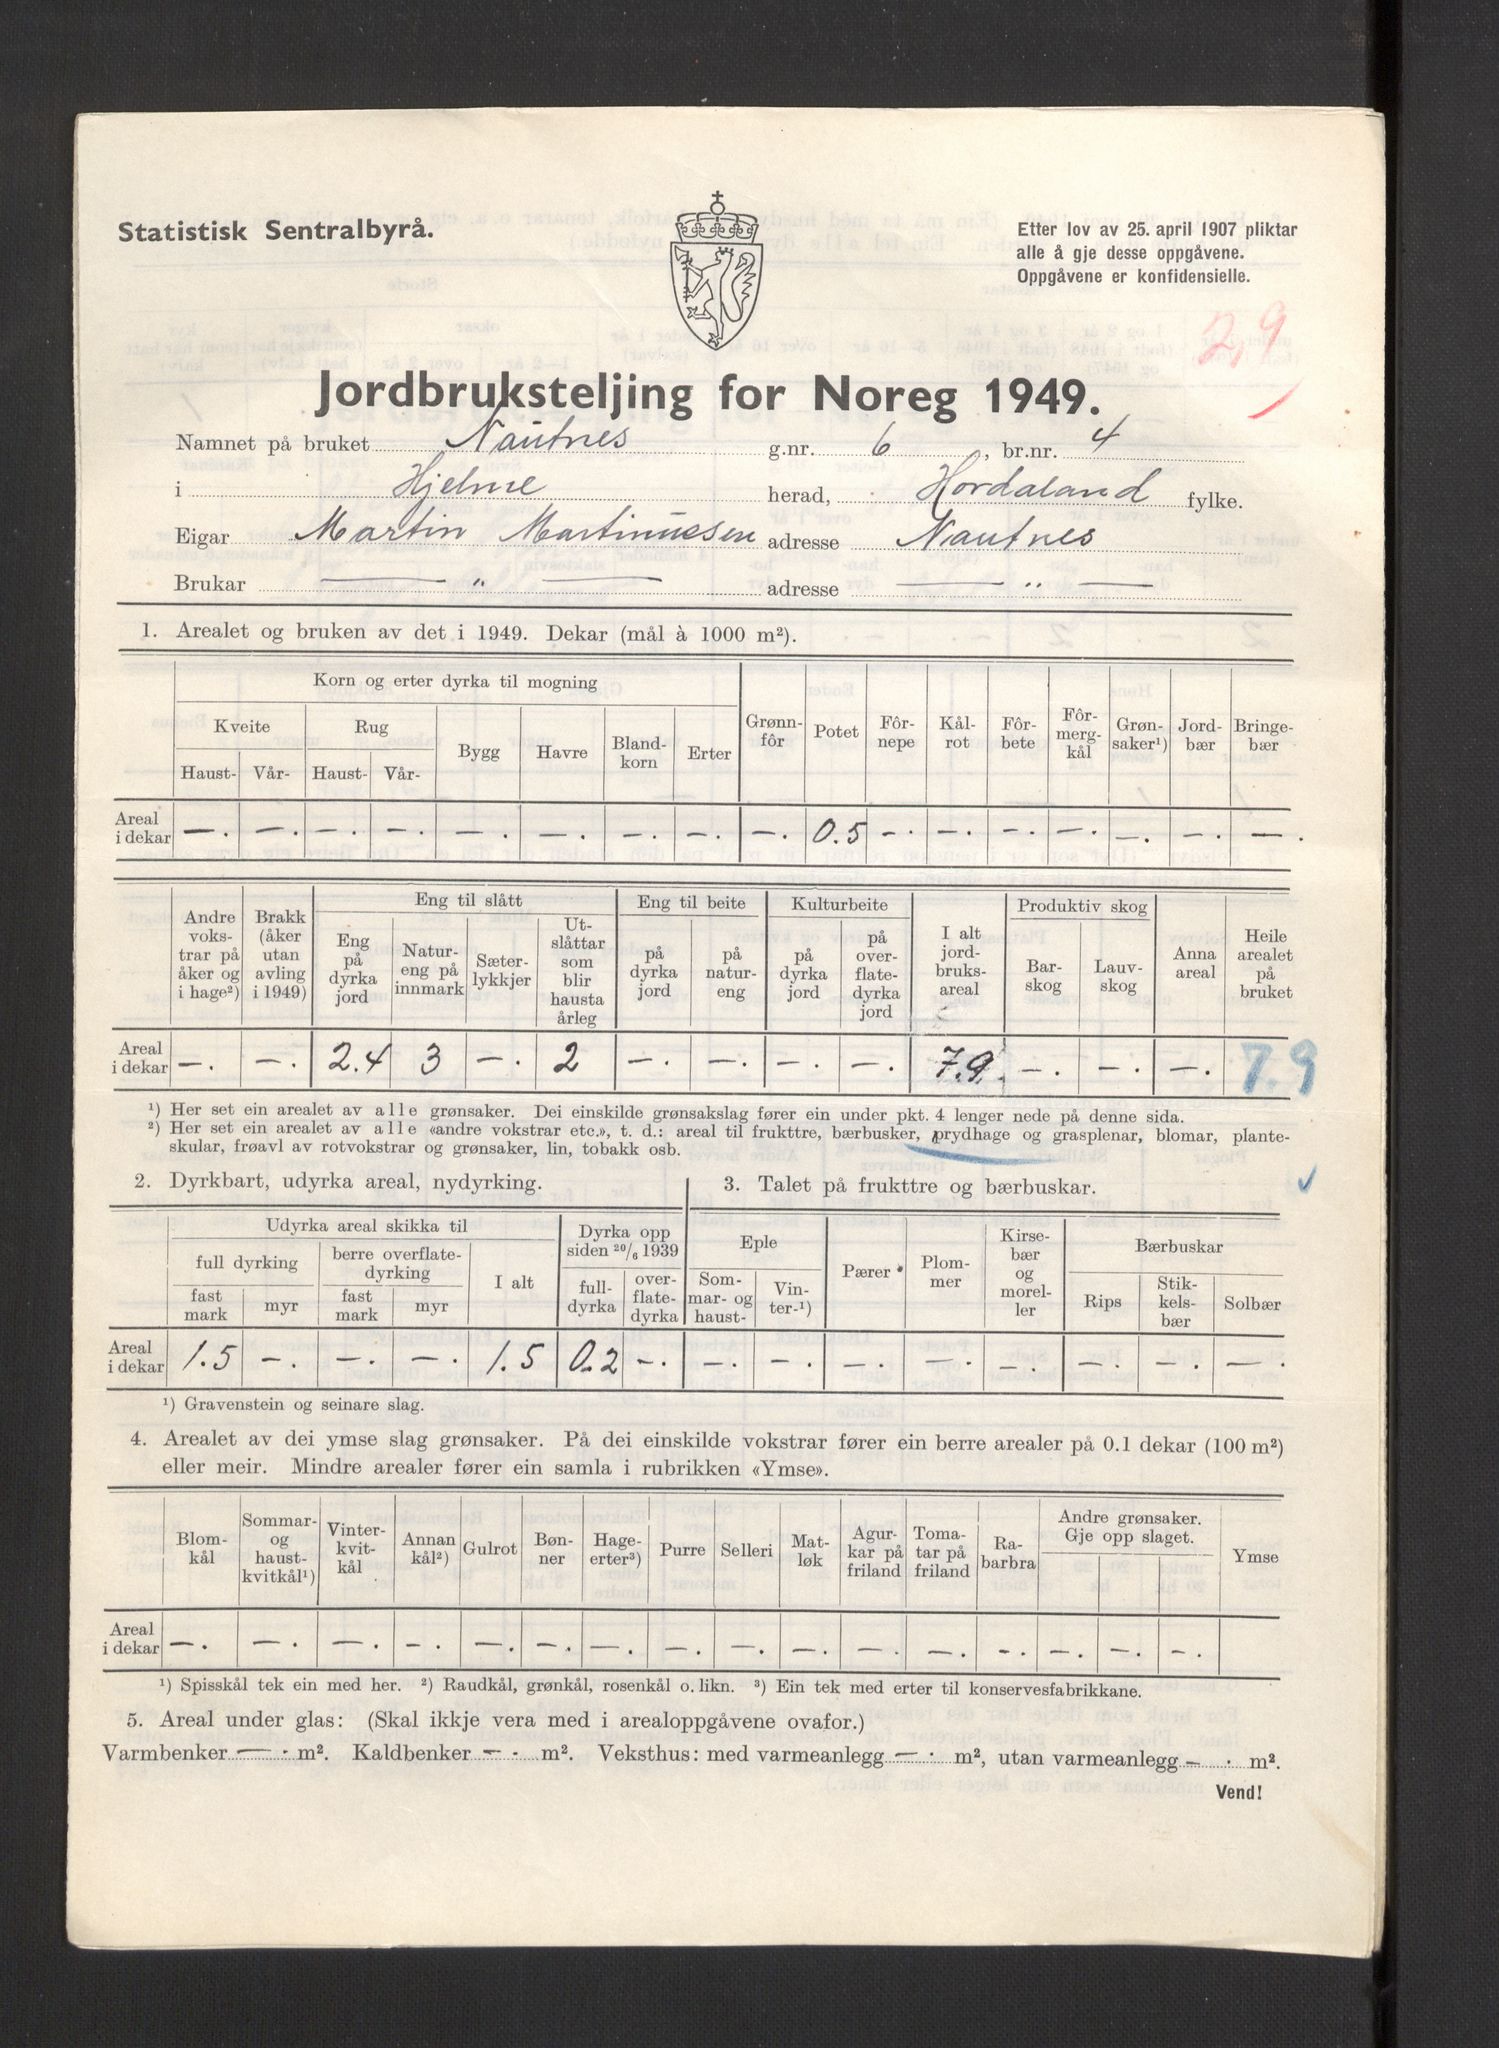 Statistisk Sentralbyrå.
Etter lov av 25. april 1907 pliktar
alle å gje desse oppgåvene.
Oppgåvene er konfidensielle.
2,9
Jordbruksteljing for Noreg 1949.
Namnet på bruket Nautnes g.nr. 6, br.nr. 4
i Hjelme herad, Hordaland fylke.
Eigar Martin Martinussen adresse Nautnes
Brukar — " — adresse — " —
1. Arealet og bruken av det i 1949. Dekar (mål à 1000 m²).
Korn og erter dyrka til mogning
Kveite Rug Bygg Havre Bland-korn Erter Grønn-fôr Potet Fôr-nepe Kål-rot Fôr-bete Fôr-mergkål Grøn-saker¹) Jord-bær Bringe-bær
Haust- Vår- Haust- Vår-
Areal i dekar —. —. —. —. —. —. —. —. —. 0.5 —. —. —. —. —. —. —.
Andre vokstrar på åker og i hage²) Brakk (åker utan avling i 1949) Eng til slått Eng til beite Kulturbeite I alt jordbruksareal Produktiv skog Anna areal Heile arealet på bruket
Eng på dyrka jord Natureng på innmark Sæterlykkjer Utslåttar som blir hausta årleg på dyrka jord på natureng på dyrka jord på overflatedyrka jord Barskog Lauvskog
Areal i dekar —. —. 2.4 3 —. 2 —. —. —. —. 7.9. —. —. —. 7.9
¹) Her set ein arealet av alle grønsaker. Dei einskilde grønsakslag fører ein under pkt. 4 lenger nede på denne sida.
²) Her set ein arealet av alle «andre vokstrar etc.», t. d.: areal til frukttre, bærbusker, prydhage og grasplenar, blomar, plante-
skular, frøavl av rotvokstrar og grønsaker, lin, tobakk osb.
2. Dyrkbart, udyrka areal, nydyrking.
Udyrka areal skikka til Dyrka opp siden 20/6 1939
full dyrking berre overflatedyrking I alt fulldyrka overflatedyrka
fast mark myr fast mark myr
Areal i dekar 1.5 —. —. —. 1.5 0.2 —.
3. Talet på frukttre og bærbuskar.
Eple Pærer Plommer Kirsebær og moreller Bærbuskar
Sommar- og haust- Vinter-¹) Rips Stikkelsbær Solbær
—. —. —. —. —. —. —. —.
¹) Gravenstein og seinare slag.
4. Arealet av dei ymse slag grønsaker. På dei einskilde vokstrar fører ein berre arealer på 0.1 dekar (100 m²)
eller meir. Mindre arealer fører ein samla i rubrikken «Ymse».
Blomkål Sommar- og haustkvitkål¹) Vinterkvitkål Annan kål²) Gulrot Bønner Hageerter³) Purre Selleri Matløk Agurkar på friland Tomatar på friland Rabarbra Andre grønsaker. Gje opp slaget. Ymse
Areal i dekar —. —. —. —. —. —. —. —. —. —. —. —. —. —. —. —.
¹) Spisskål tek ein med her. ²) Raudkål, grønkål, rosenkål o. likn. ³) Ein tek med erter til konservesfabrikkane.
5. Areal under glas: (Skal ikkje vera med i arealoppgåvene ovafor.)
Varmbenker —. m². Kaldbenker —. m². Veksthus: med varmeanlegg —. m², utan varmeanlegg —. m².
Vend!